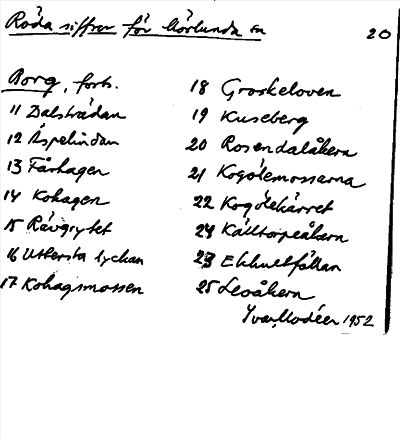 Röda siffror för Mörlunda sn
20
Borg, forts.
11 Dalsträdan
12 Aspelindan
13 Fårhagen
14 Kohagen
15 Rävgrytet
16 Utlersta lyckan
17 Kohagsmossen
18 Groskeloven
19 Kuseberg
20 Rosendalåkern
21 Kogölemossarna
22 Kogölekärret
24 Källtorpeåkern
23 Ekhultfållan
25 Leoåkern
Yvar Modéer 1952